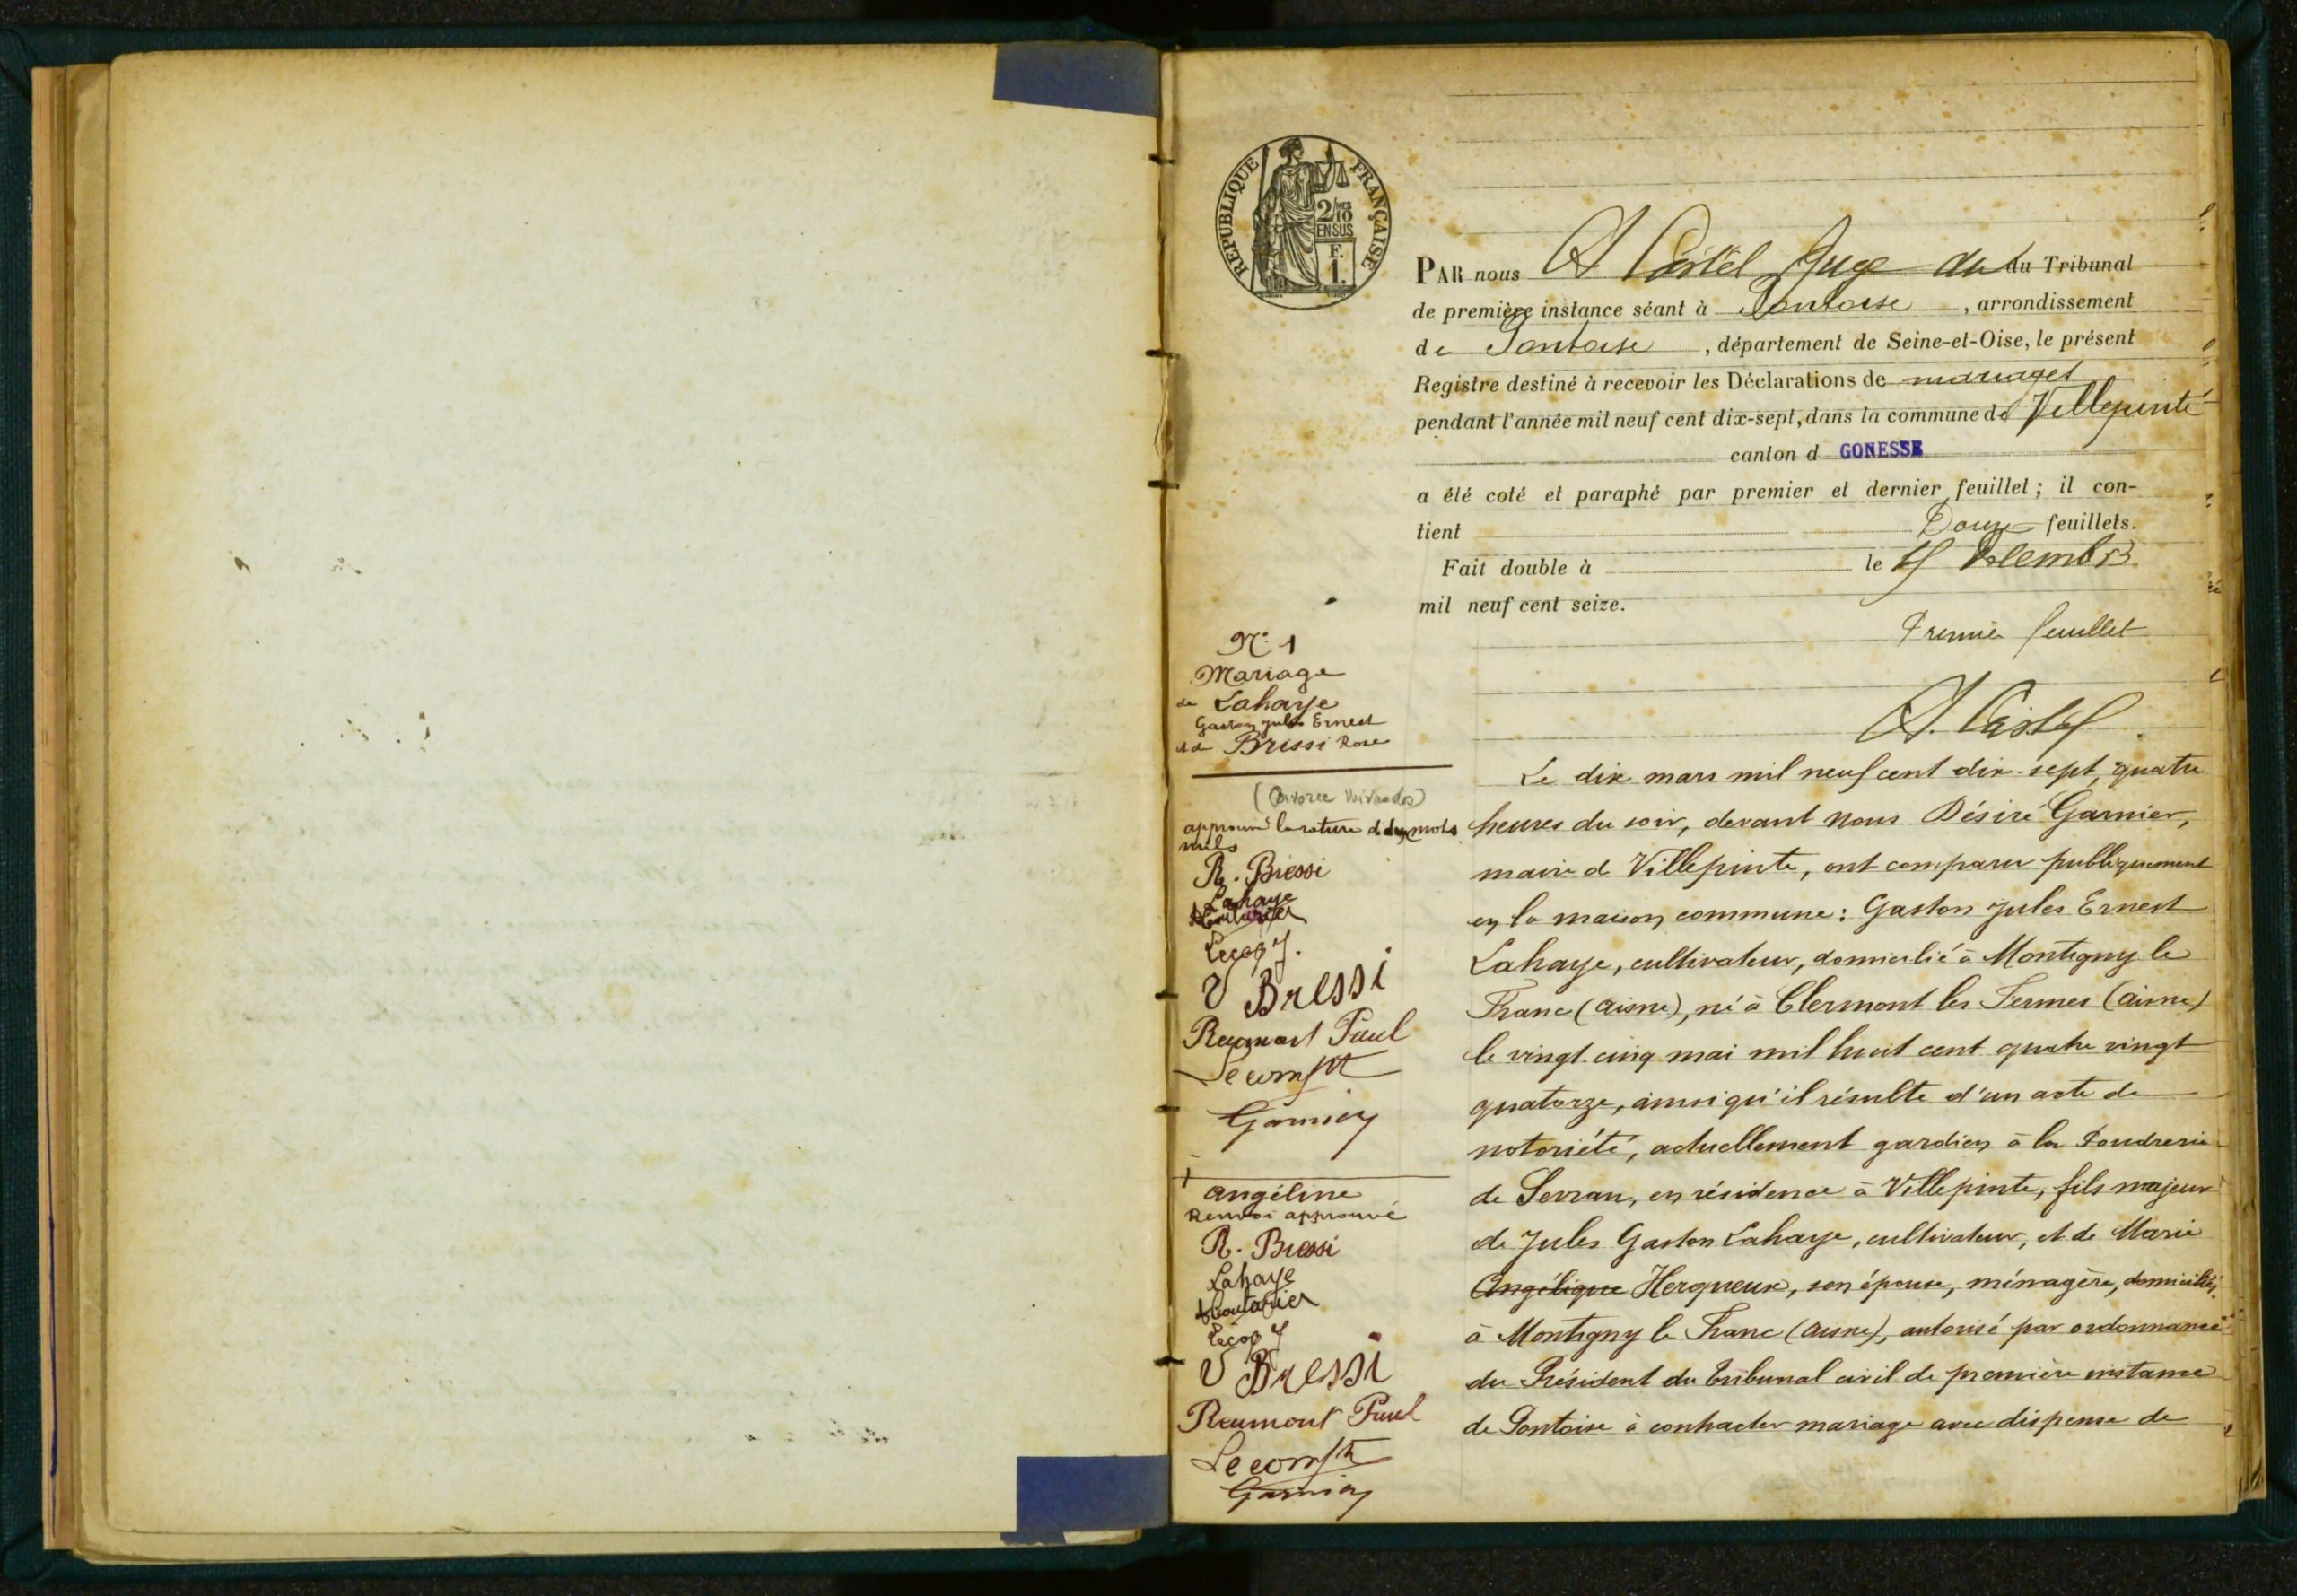 RÉPUBLIQUE FRANÇAISE
2/10 MES
EN SUS
F.
1.
PAR nous A Castel Juge du du Tribunal
de première instance séant à Pontoise, arrondissement
de Pontoise, département de Seine-et-Oise, le présent
Registre destiné à recevoir les Déclarations de mariages
pendant l'année mil neuf cent dix-sept, dans la commune de Villepinte
canton d GONESSE
a été coté et paraphé par premier et dernier feuillet ; il con-
tient Douze feuillets.
Fait double à le Décembre
mil neuf cent seize.
Premier feuillet
A. Castel
N° 1
Mariage
de Lahaye
Gaston Jules Ernest
et de Bressi Rose
(Divorce)
approuvé la rature de deux mots
nuls
R. Bressi
Lahaye
Lecoq
V Bressi
Reumont Paul
Lecompte
Garnier
Angéline
Renvoi approuvé
R. Bressi
Lahaye
Lecoq
V Bressi
Reumont Paul
Lecompte
Garnier
Le dix mars mil neuf cent dix-sept, quatre
heures du soir, devant nous Désiré Garnier,
maire de Villepinte, ont comparu publiquement
en la maison commune : Gaston Jules Ernest
Lahaye, cultivateur, domicilié à Montigny le
Franc (Aisne), né à Clermont les Fermes (Aisne)
le vingt-cinq mai mil huit cent quatre vingt
quatorze, ainsi qu'il résulte d'un acte de
notoriété, actuellement gardien à la Poudrerie
de Sevran, en résidence à Villepinte, fils majeur
de Jules Gaston Lahaye, cultivateur, et de Marie
Angélique Herqueux, son épouse, ménagère, domiciliés
à Montigny le Franc (Aisne), autorisé par ordonnance
du Président du tribunal civil de première instance
de Pontoise à contracter mariage avec dispense de